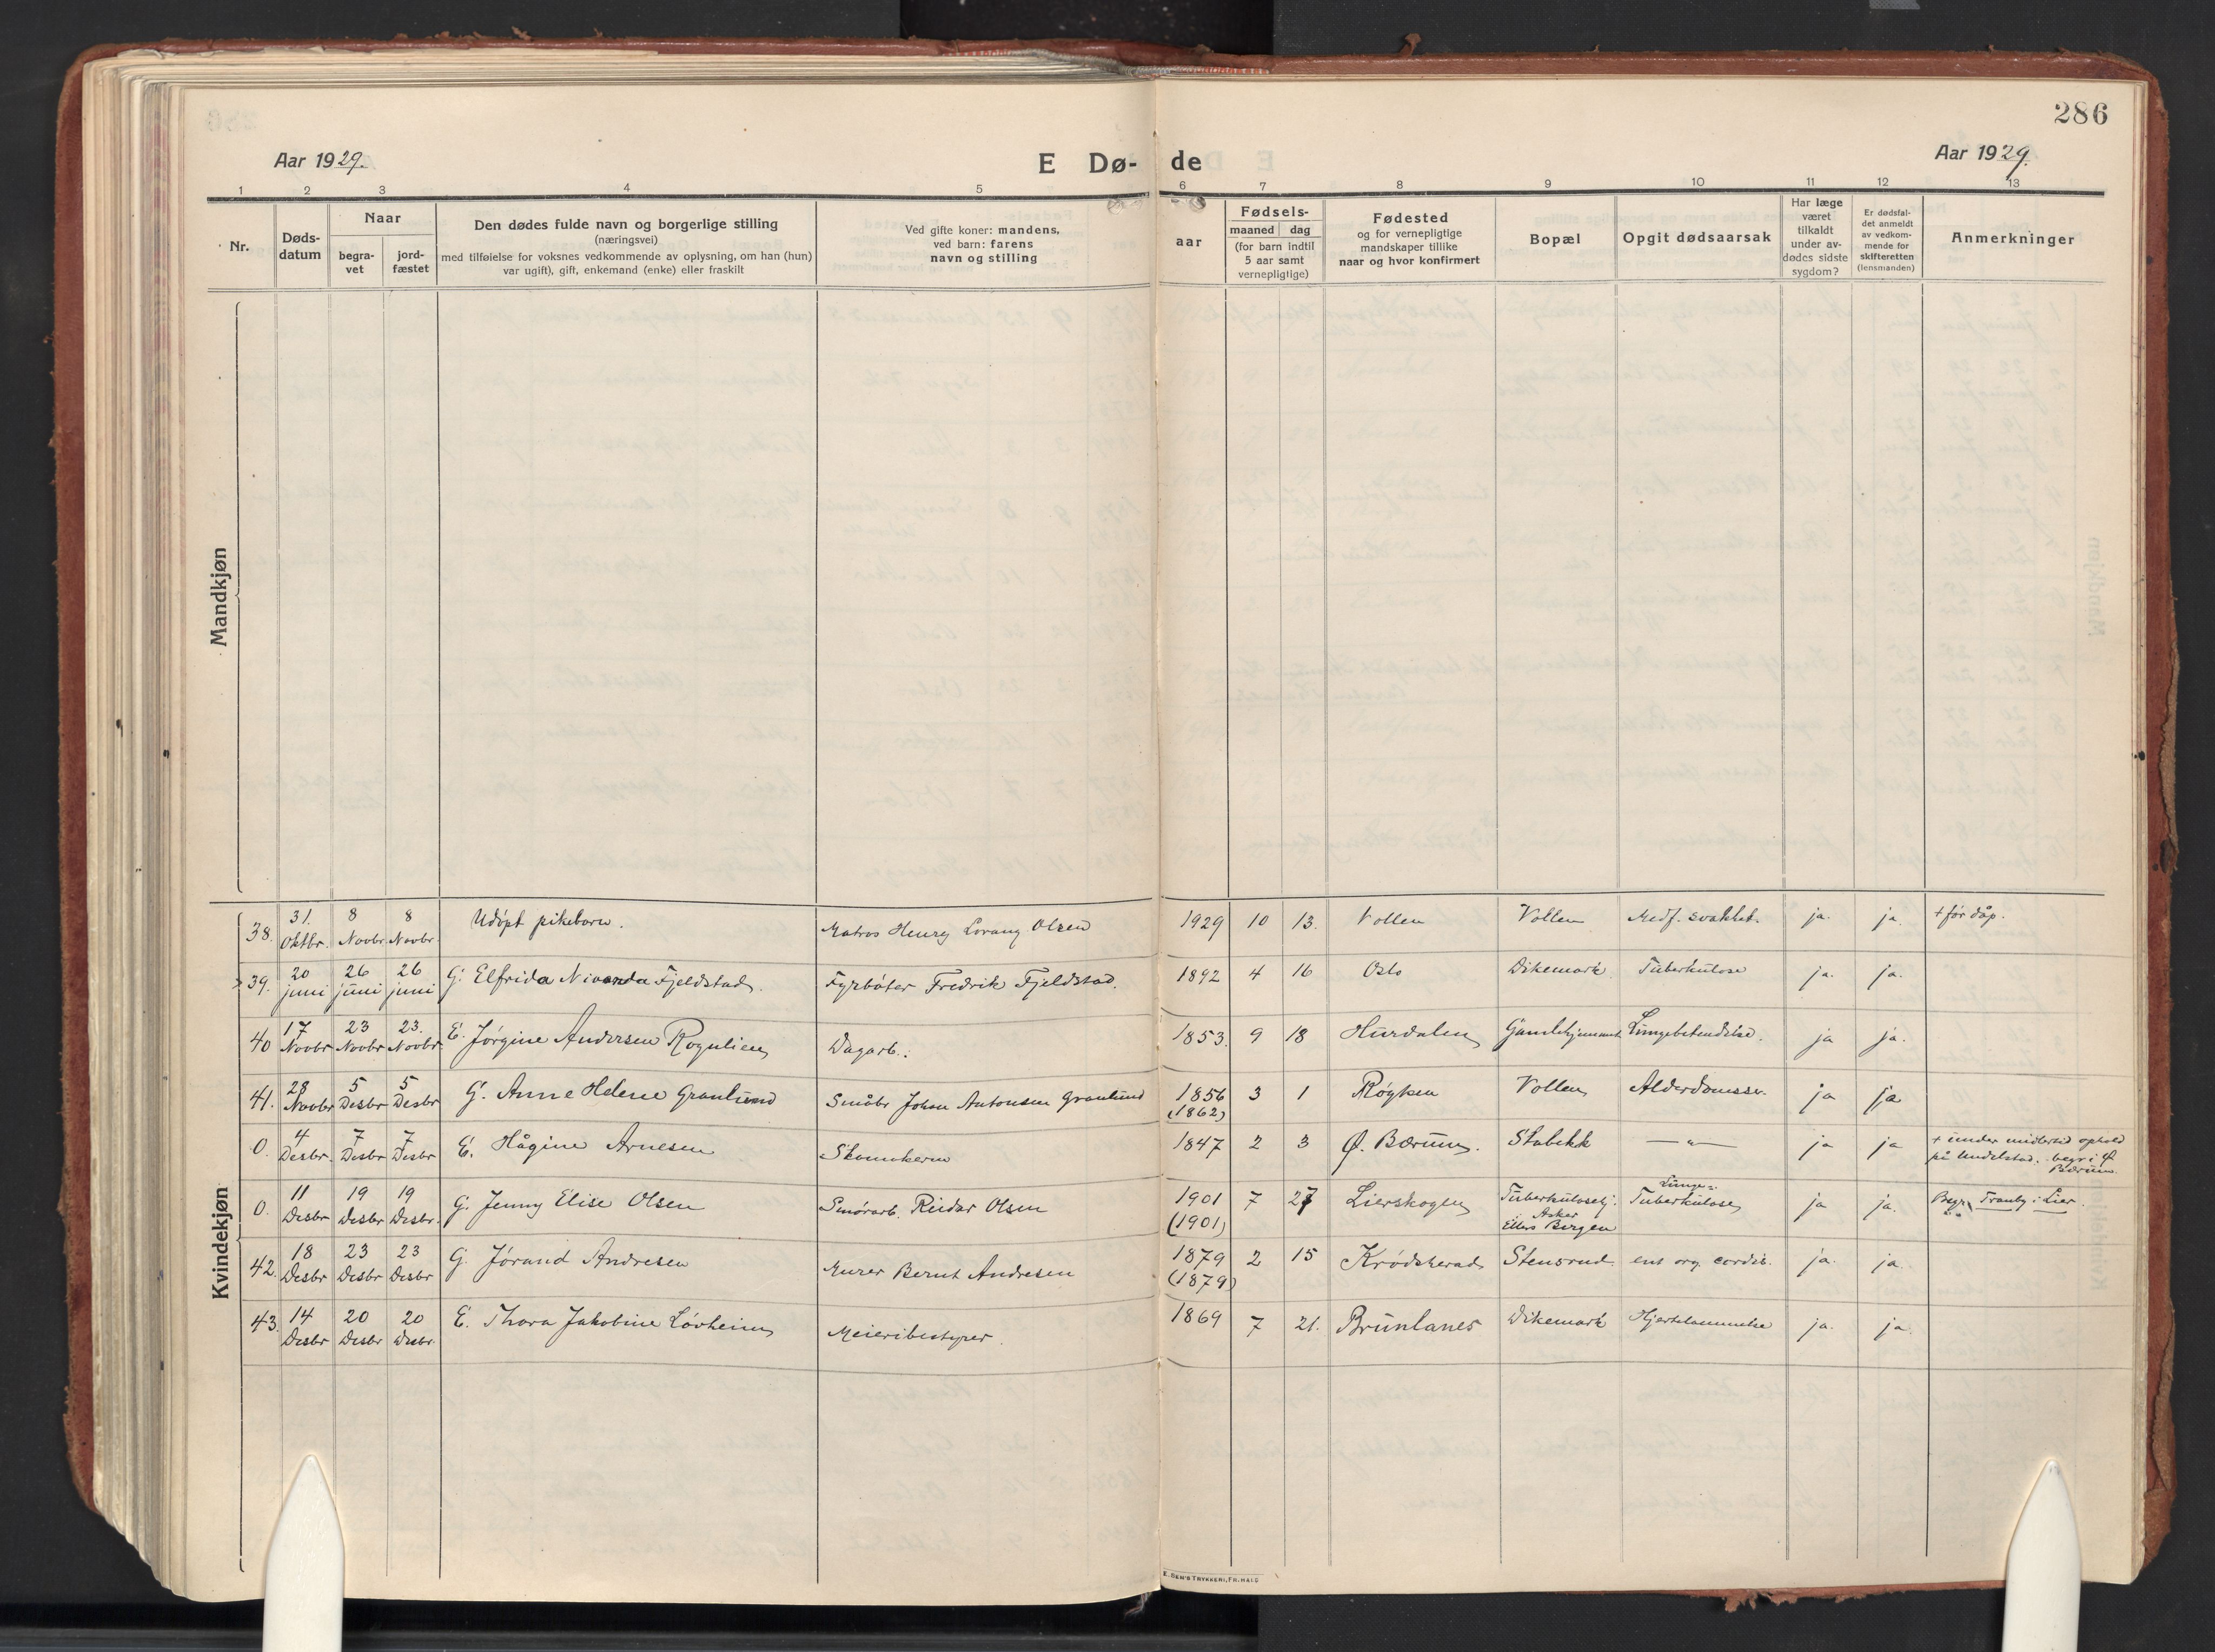 286
Aar 1929.
E Dø-
de
Aar 1929.
1 2 3 4 5 6 7 8 9 10 11 12 13
Nr.
Døds-
datum
Naar
begra-
vet
jord-
fæstet
Den dødes fulde navn og borgerlige stilling
(næringsvei)
med tilføielse for voksnes vedkommende av oplysning, om han (hun)
var ugift), gift, enkemand (enke) eller fraskilt
Ved gifte koner: mandens,
ved barn: farens
navn og stilling
aar
Fødsels-
maaned dag
(for barn indtil
5 aar samt
vernepligtige)
Fødested
og for vernepligtige
mandskaper tillike
naar og hvor konfirmert
Bopæl
Opgit dødsaarsak
Har læge
været
tilkaldt
under av-
dødes sidste
sygdom?
Er dødsfal-
det anmeldt
av vedkom-
mende for
skifteretten
(lensmanden)
Anmerkninger
Mandkjøn
Kvindekjøn
38. 31. Oktbr. 8 Novbr. 8 Novbr. Udøpt pikebarn. Matros Henry Lorang Olsen 1929 10 13. Vollen Vollen Medf. svakhet. ja. ja. + før dåp.
39. 20 juni 26 juni 26 juni G. Elfrida Nivarda Fjeldstad. Fyrbøter Fredrik Fjeldstad. 1892 4 16 Oslo Dikemark Tuberkulose ja. ja.
40 17 Novbr 23 Novbr 23. Novbr. E. Jørgine Andersen Rognlien Dagarb. 1853. 9 18 Hurdalen Gamlehjemmet Lungebetendelse. ja ja.
41. 28 Novbr 5 Desbr 5 Desbr G. Anne Helene Granlund Småbr Johan Antonsen Granlund 1856 (1862) 3 1 Røyken Vollen Alderdomssv. ja ja
0. 4 Desbr. 7 Desbr 7 Desbr E. Hågine Arnesen Skomakerm 1847 2 3 Ø. Bærum. Stabekk — " — ja ja + under midlertid ophold
på Undelstad. begr i Ø.
Bærum.
0. 11 Desbr 19 Desbr 19 Desbr. G. Jenny Elise Olsen Smørarb. Reidar Olsen 1901 (1901) 7 27 Lierskogen Tuberkulosehj. i Asker
Ellers Bergen Lunge-
Tuberkulose ja ja. Begr. Tranby i Lier.
42. 18 Desbr 23 Desbr 23 Desbr G. Jørand Andresen Murer Bernt Andresen 1879 (1879) 2 15 Krødsherad Stensrud ent org. cordis. ja. ja
43. 14 Desbr 20 Desbr 20 Desbr. E. Thora Jakobine Løvheim Meieribestyrer. 1869 7 21. Brunlanes Dikemark Hjertelammelse ja. ja.